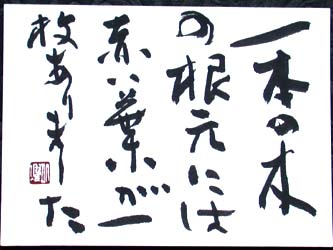 一本の木
の根元には
赤い葉が一
枚ありました